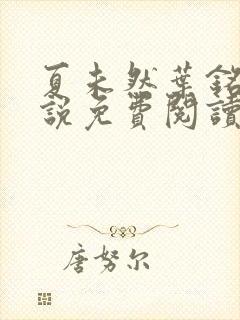 夏未然葉銘
說免費閱讀
唐努尔